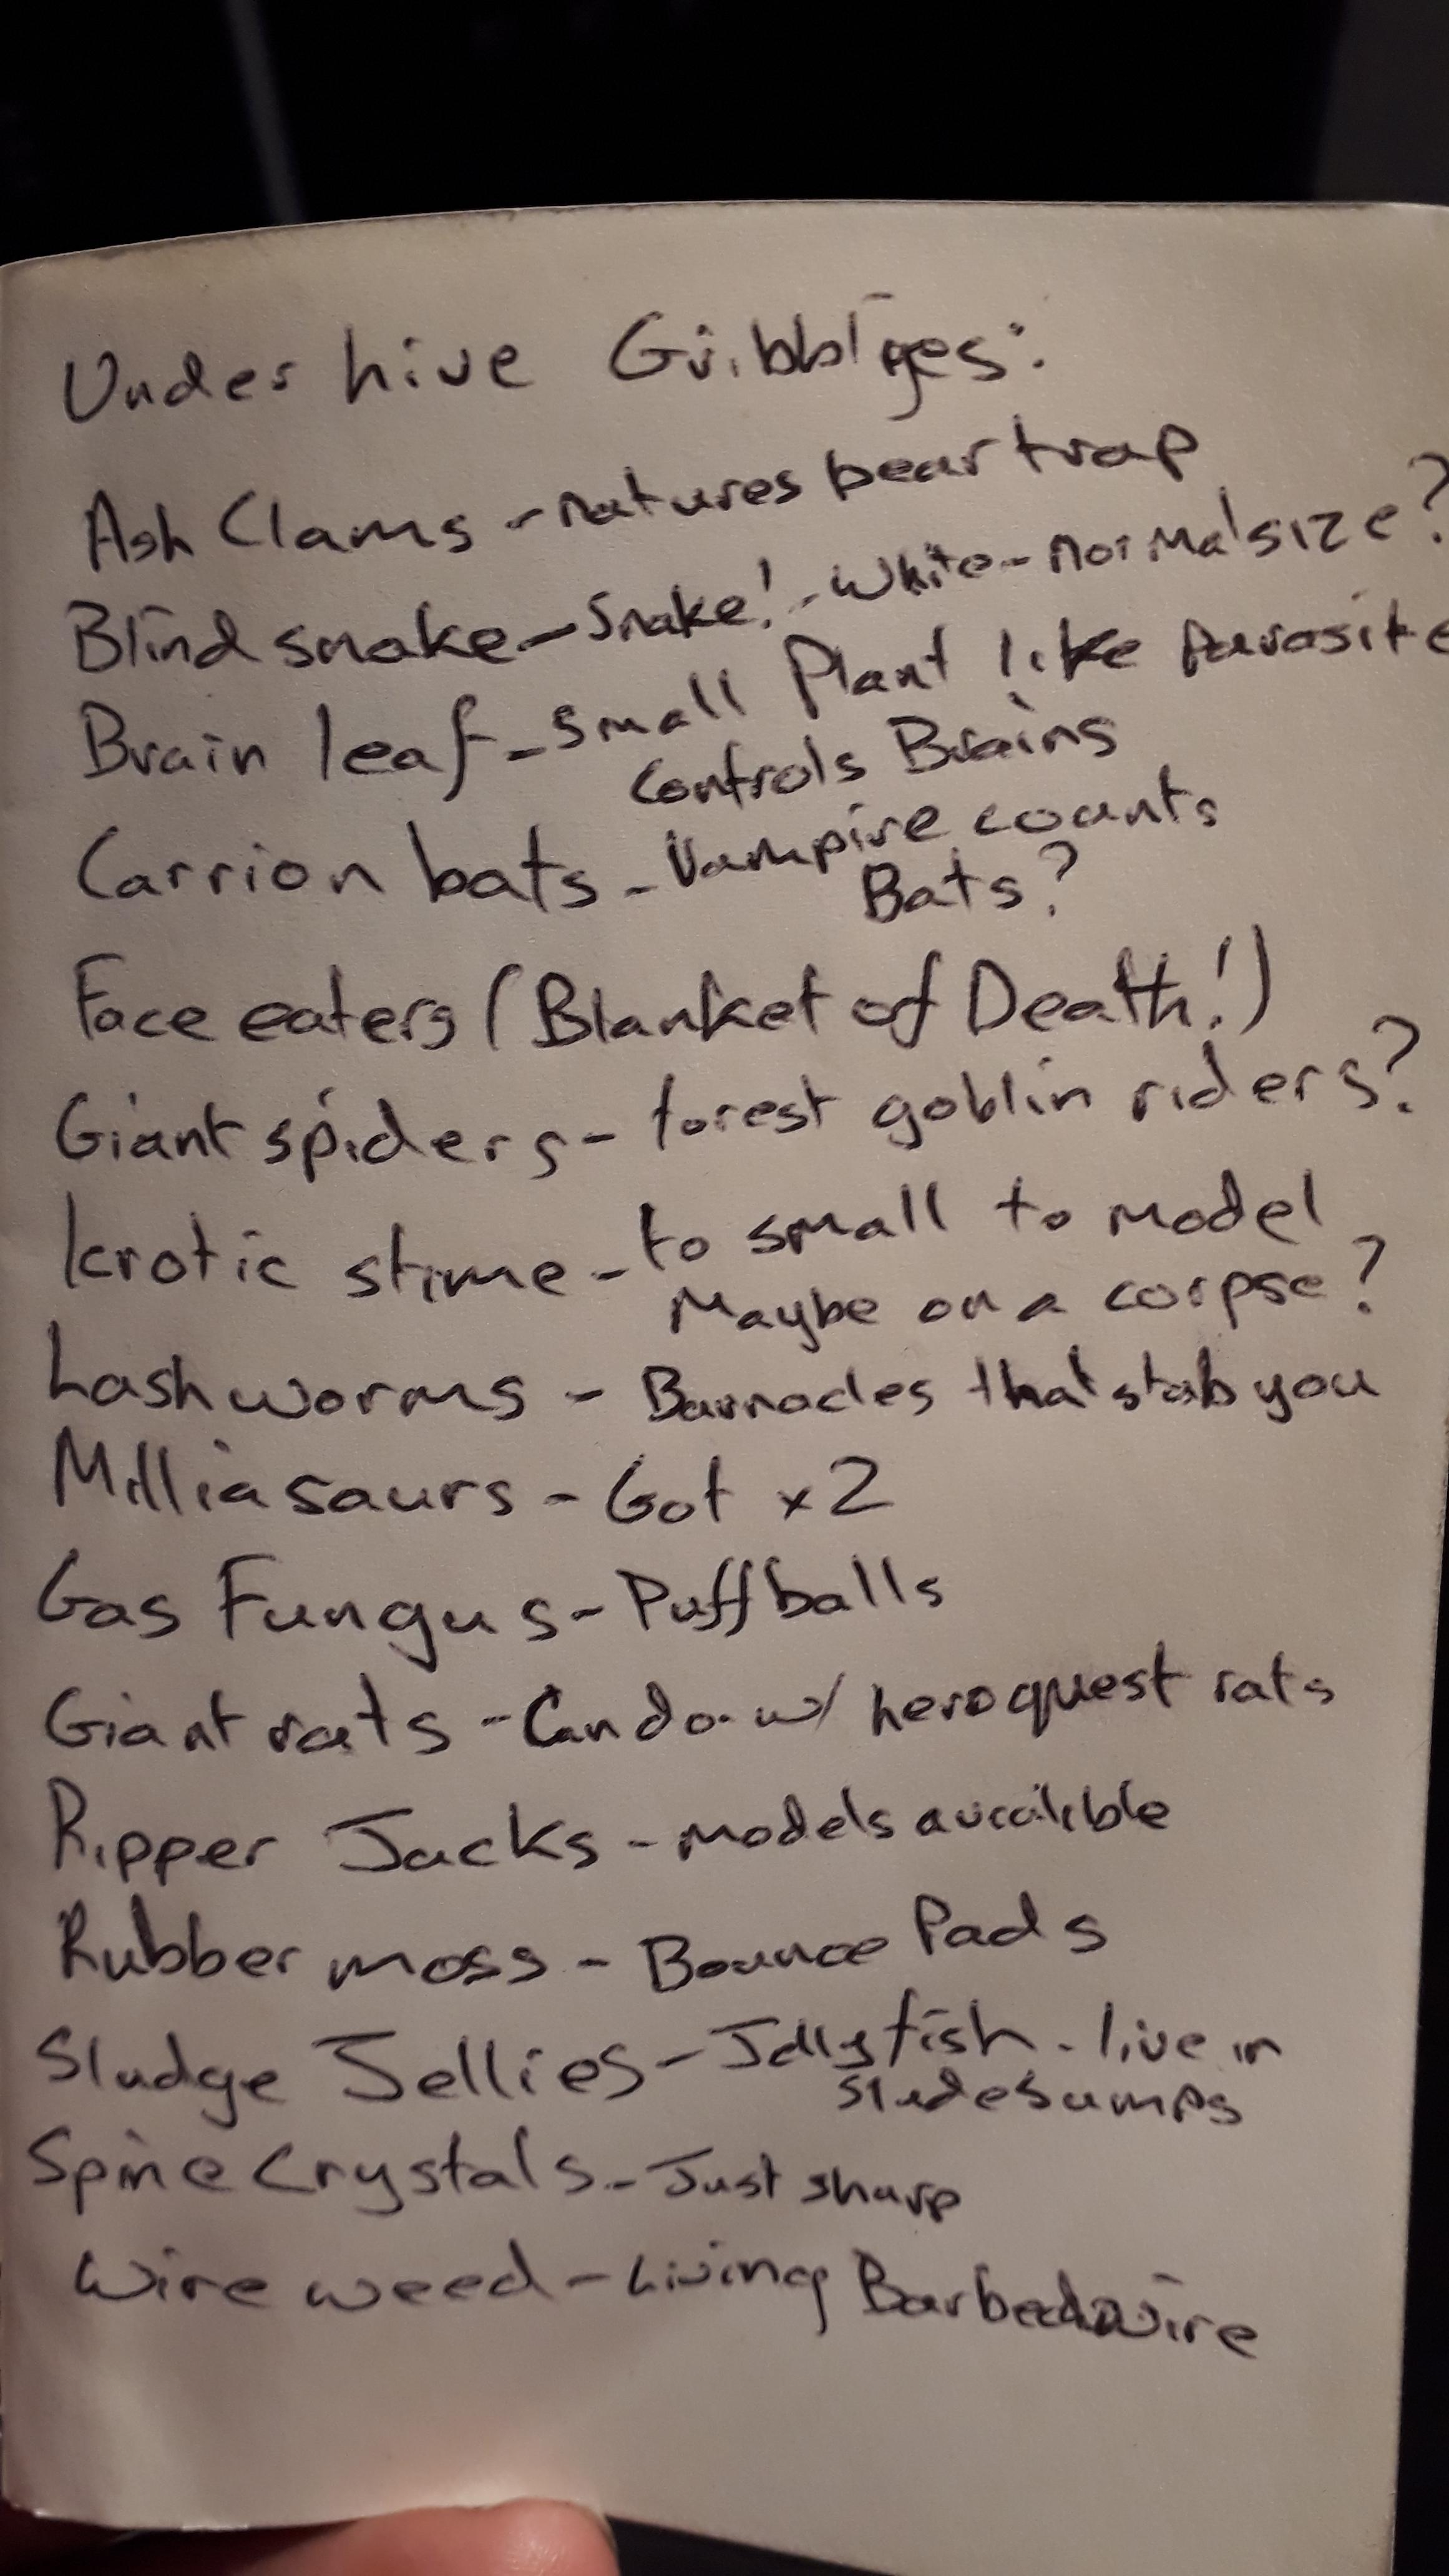 Underhive Gribblyes:
Ash Clams - natures bear trap
Blind snake - Snake! - White - normal size?
Brain leaf - small Plant like Parasite
Controls Brains
Carrion bats - Vampire counts
Bats?
Face eaters (Blanket of Death!)
Giant spiders - forest goblin riders?
Icrotic slime - to small to model
Maybe on a corpse?
Lashworms - Barnacles that stab you
Milliasaurs - Got x2
Gas Fungus - Puffballs
Giant rats - Can do w/ heroquest rats
Ripper Jacks - models availible
Rubber moss - Bounce Pads
Sludge Jellies - Jellyfish - live in
Sludesumps
Spine Crystals - Just sharp
Wire weed - Living Barbedwire